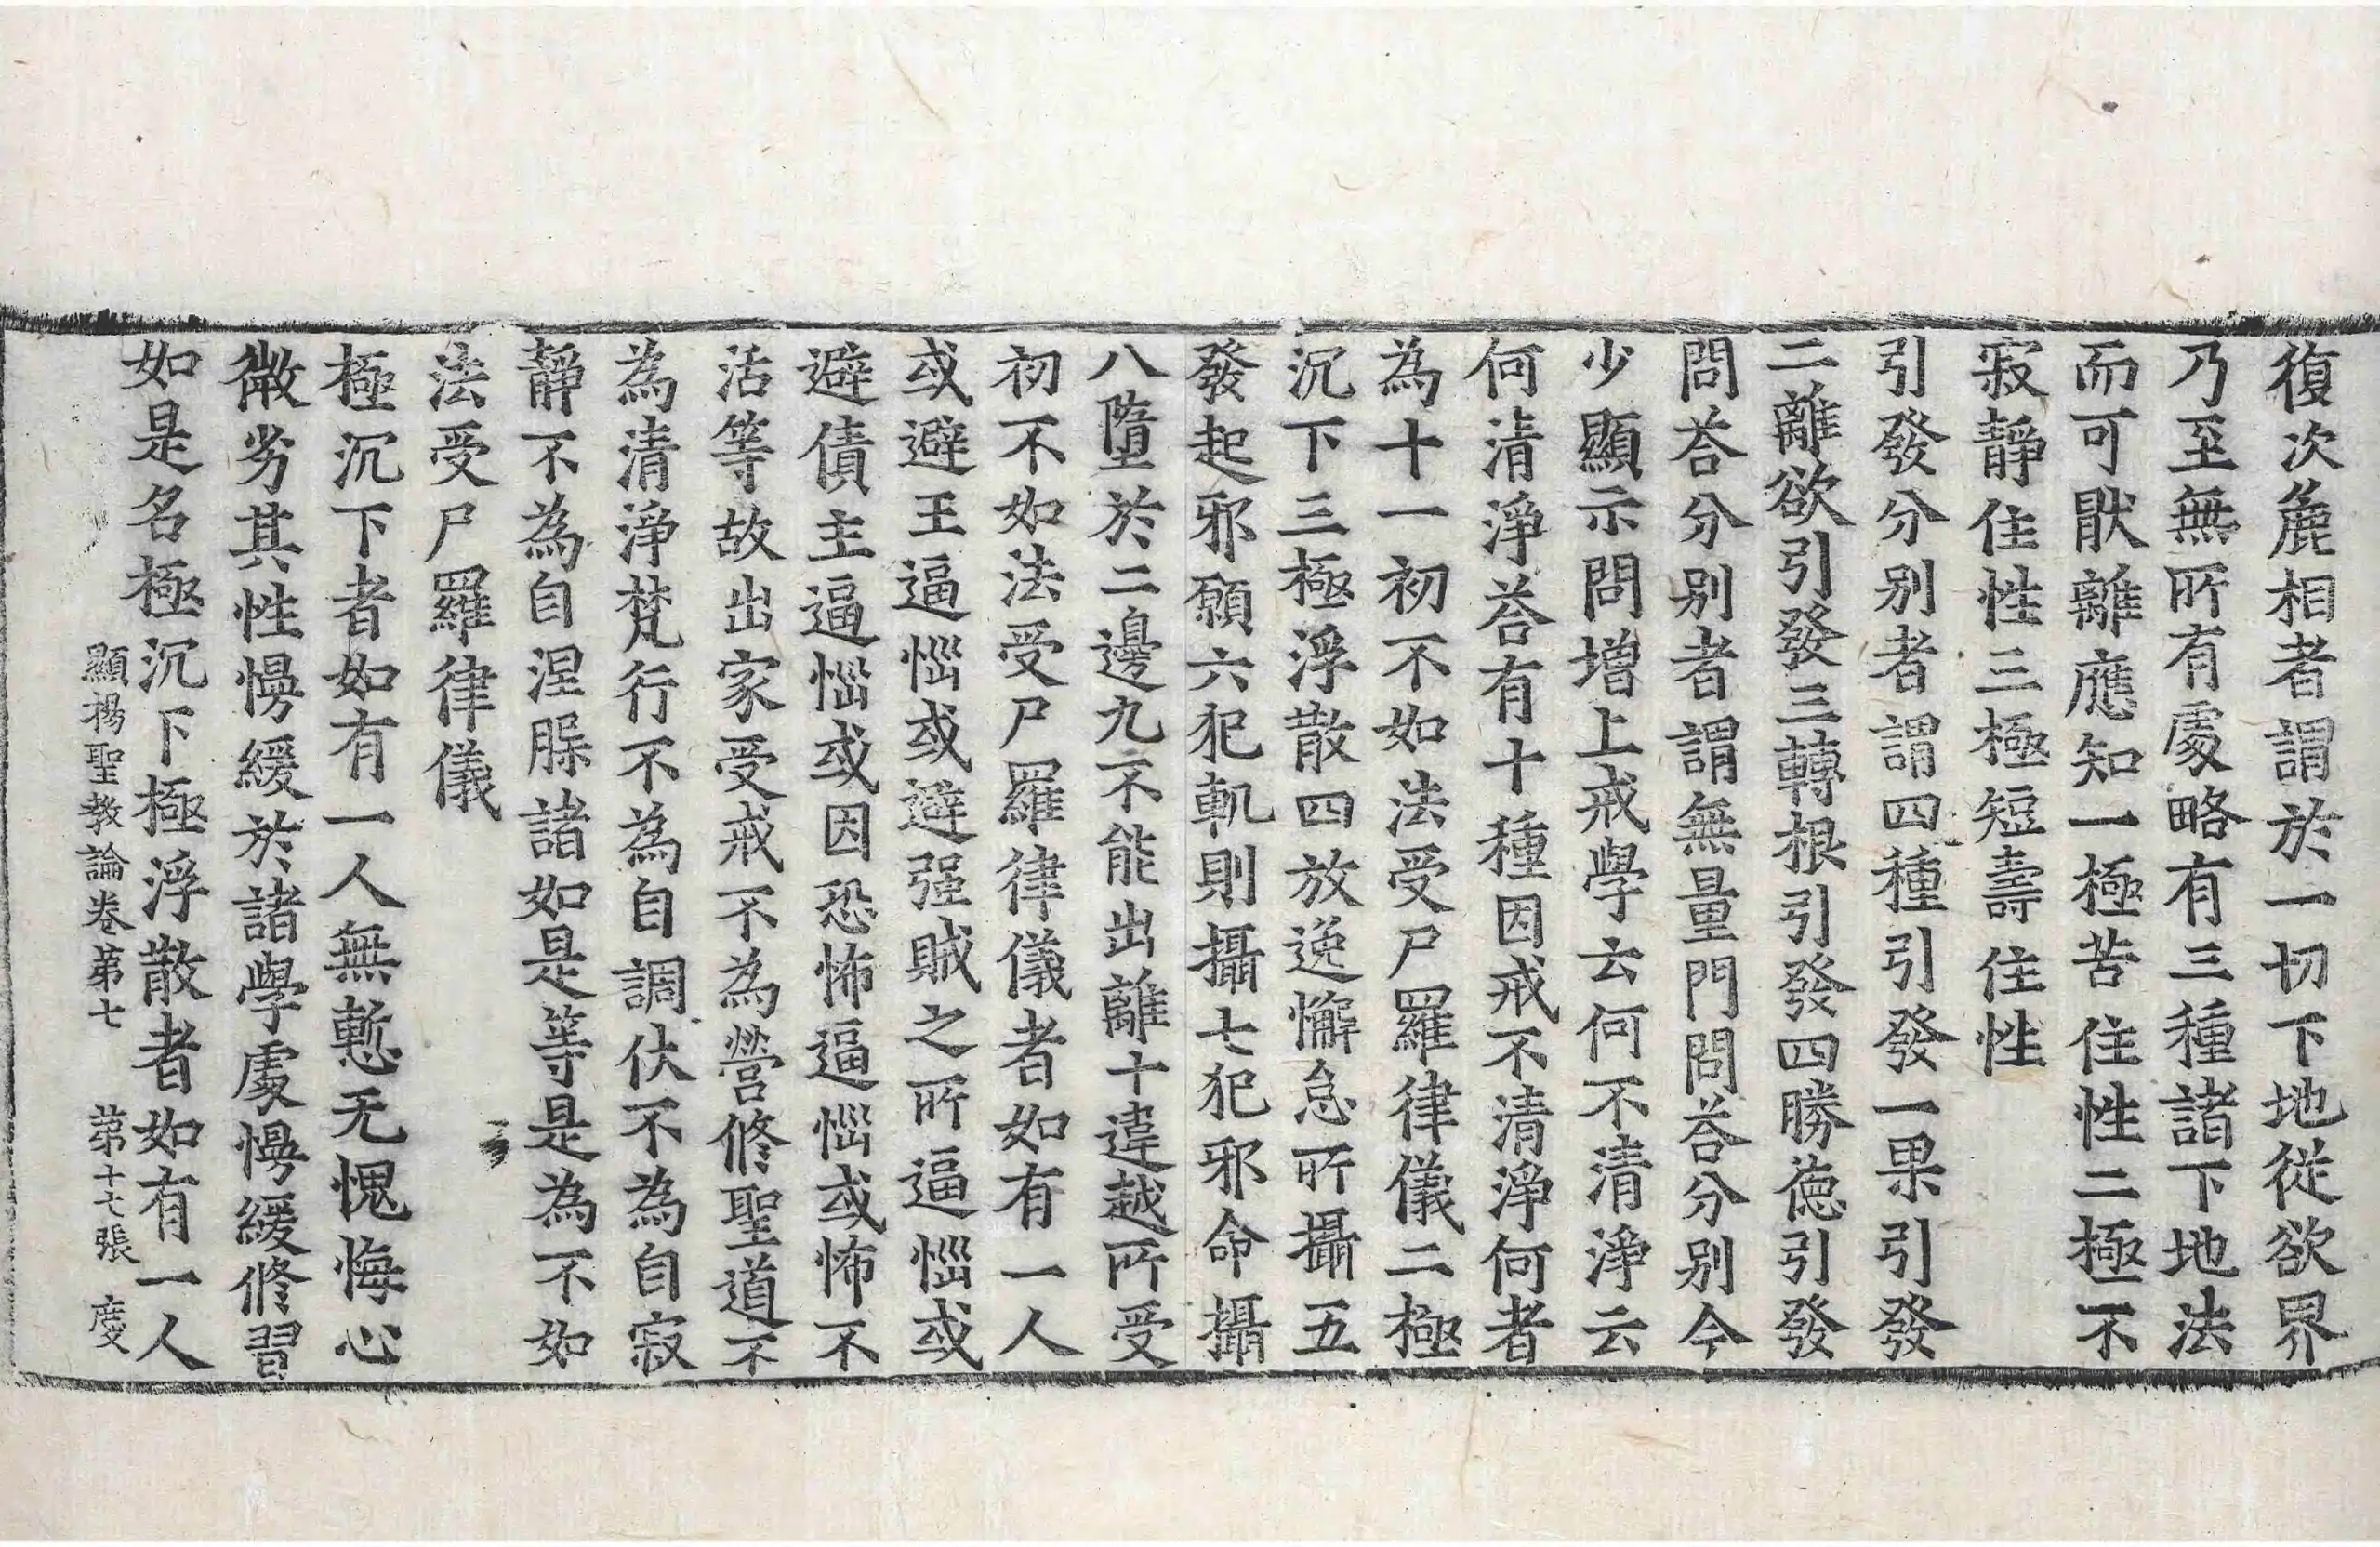 復次麁相者謂於一切下地從欲界
乃至無所有處略有三種諸下地法
而可猒離應知一極苦住性二極不
寂靜住性三極短壽住性
引發分別者謂四種引發一果引發
二離欲引發三轉根引發四勝德引發
問荅分別者謂無量門問荅分別今
少顯示問增上戒學云何不清淨云
何清淨荅有十種因戒不清淨何者
為十一初不如法受尸羅律儀二極
沉下三極浮散四放逸懈怠所攝五
發起邪願六犯軌則攝七犯邪命攝
八墮於二邊九不能出離十違越所受
初不如法受尸羅律儀者如有一人
或避王逼惱或避强賊之所逼惱或
避債主逼惱或因恐怖逼惱或怖不
活等故出家受戒不為營修聖道不
為清淨梵行不為自調伏不為自寂
靜不為自涅槃諸如是等是為不如
法受尸羅律儀
極沉下者如有一人無慙无愧悔心
微劣其性慢緩於諸學處慢緩修習
如是名極沉下極浮散者如有一人
顯揚聖教論卷第七　第十七張　慶